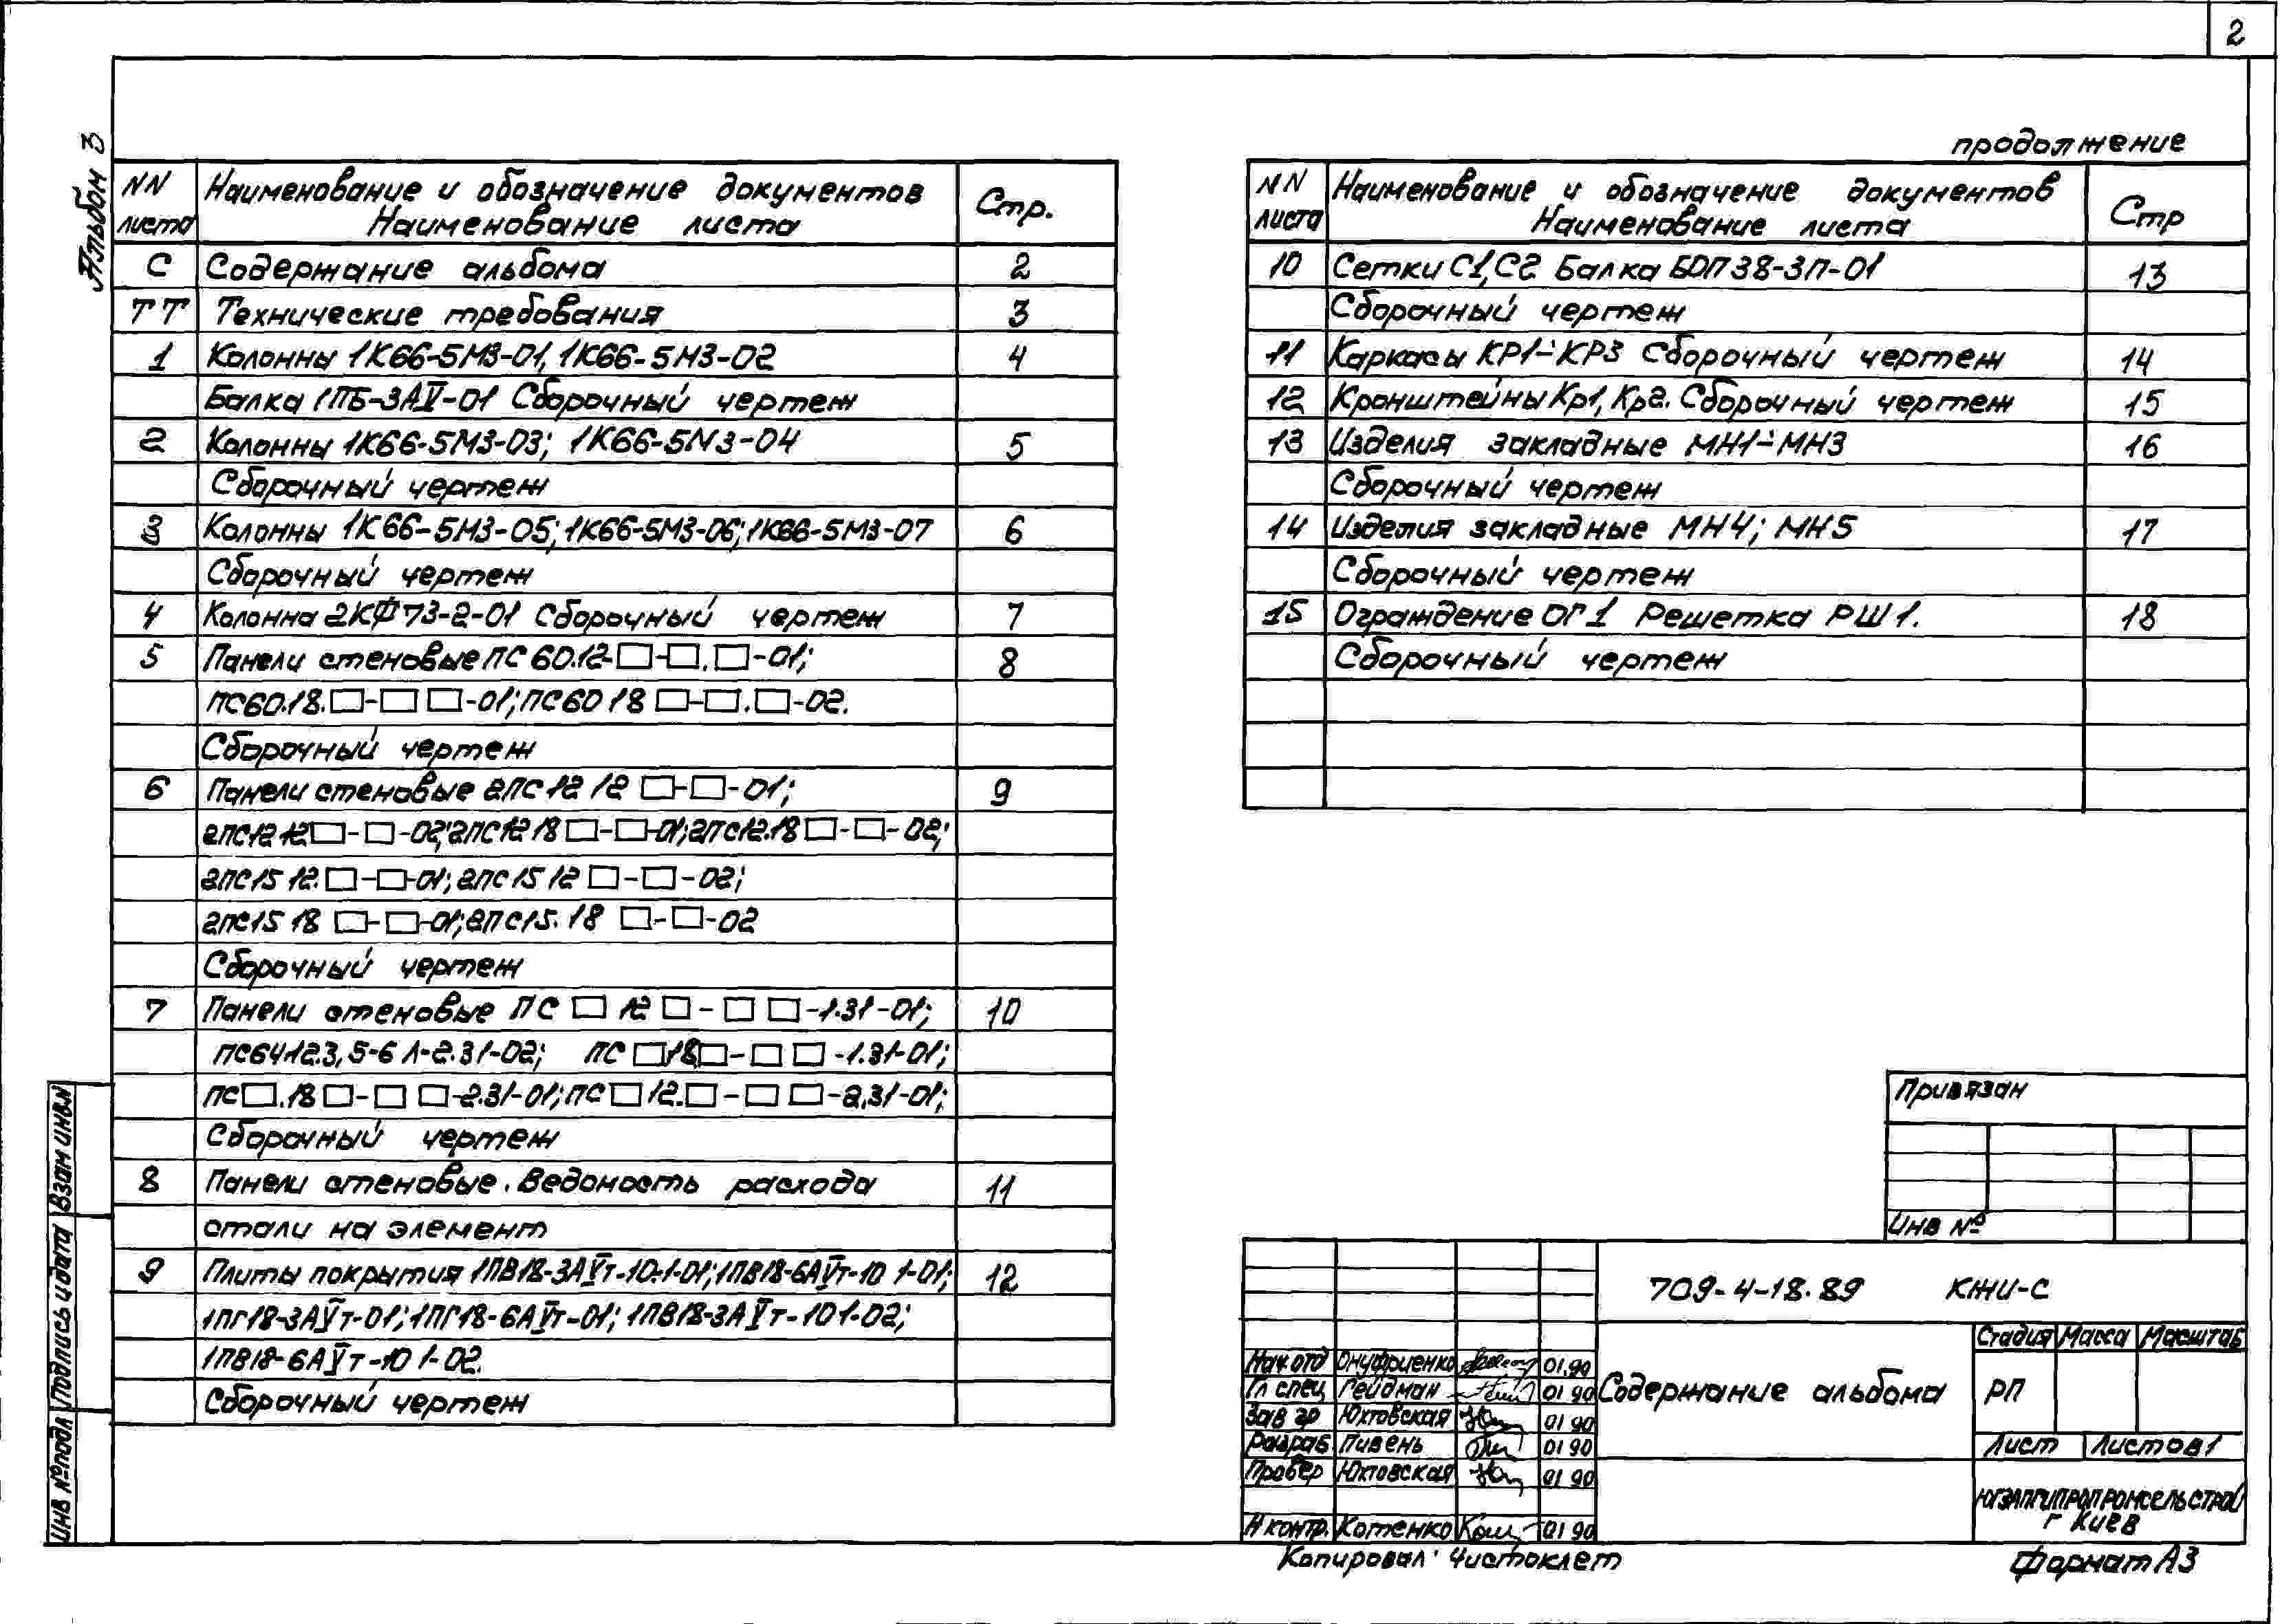 2
Альбом 3
NN листа Наименование и обозначение документов Наименование листа Стр.
С Содержание альбома 2
ТТ Технические требования 3
1 Колонны 1К66-5М3-01, 1К66-5М3-02 4
Балка 1ПБ-3АV-01 Сборочный чертеж
2 Колонны 1К66-5М3-03; 1К66-5М3-04 5
Сборочный чертеж
3 Колонны 1К66-5М3-05; 1К66-5М3-06; 1К66-5М3-07 6
Сборочный чертеж
4 Колонна 2КФ73-2-01 Сборочный чертеж 7
5 Панели стеновые ПС 60.12-□-□.□-01; 8
ПС60.18.□-□ □-01; ПС60 18 □-□.□-02.
Сборочный чертеж
6 Панели стеновые 2ПС 12 12 □-□-01; 9
2ПС12 12□-□-02; 2ПС12 18□-□-01; 2ПС12.18□-□-02;
2ПС15 12.□-□-01; 2ПС15 12 □-□-02;
2ПС15 18 □-□-01; 2ПС15.18 □-□-02
Сборочный чертеж
7 Панели стеновые ПС □ 12 □-□ □-1.31-01; 10
ПС64 12.3,5-6 Л-2.31-02; ПС □ 18□-□ □-1.31-01;
ПС□.18 □-□ □-2.31-01; ПС □ 12.□-□ □-2.31-01;
Сборочный чертеж
8 Панели стеновые. Ведомость расхода 11
стали на элемент
9 Плиты покрытия 1ПВ18-3АVт-10.1-01; 1ПВ18-6АVт-10 1-01; 12
1ПГ18-3АVт-01; 1ПГ18-6АVт-01; 1ПВ18-3АVт-10 1-02;
1ПВ18-6АVт-10 1-02.
Сборочный чертеж
продолжение
NN листа Наименование и обозначение документов Наименование листа Стр
10 Сетки С1, С2 Балка БОП 38-3П-01 13
Сборочный чертеж
11 Каркасы КР1÷КР3 Сборочный чертеж 14
12 Кронштейны Кр1, Кр2. Сборочный чертеж 15
13 Изделия закладные МН1÷МН3 16
Сборочный чертеж
14 Изделия закладные МН4; МН5 17
Сборочный чертеж
15 Ограждение ОГ1 Решетка РШ1. 18
Сборочный чертеж
Привязан
Инв №
709-4-18.89 КЖИ-С
Стадия Масса Масштаб
Нач.отд Онуфриенко 01.90
Гл спец Гейдман 01 90 Содержание альбома РП
Зав гр Юхтовская 01 90
Разраб. Пивень 01 90 Лист Листов 1
Провер Юхтовская 01 90
ЮГЗАПГИПРОПРОМСЕЛЬСТРОЙ
г Киев
Н контр. Котенко 01 90
Копировал: Чистоклет Формат А3
Инв № подл Подпись и дата Взам инв.N